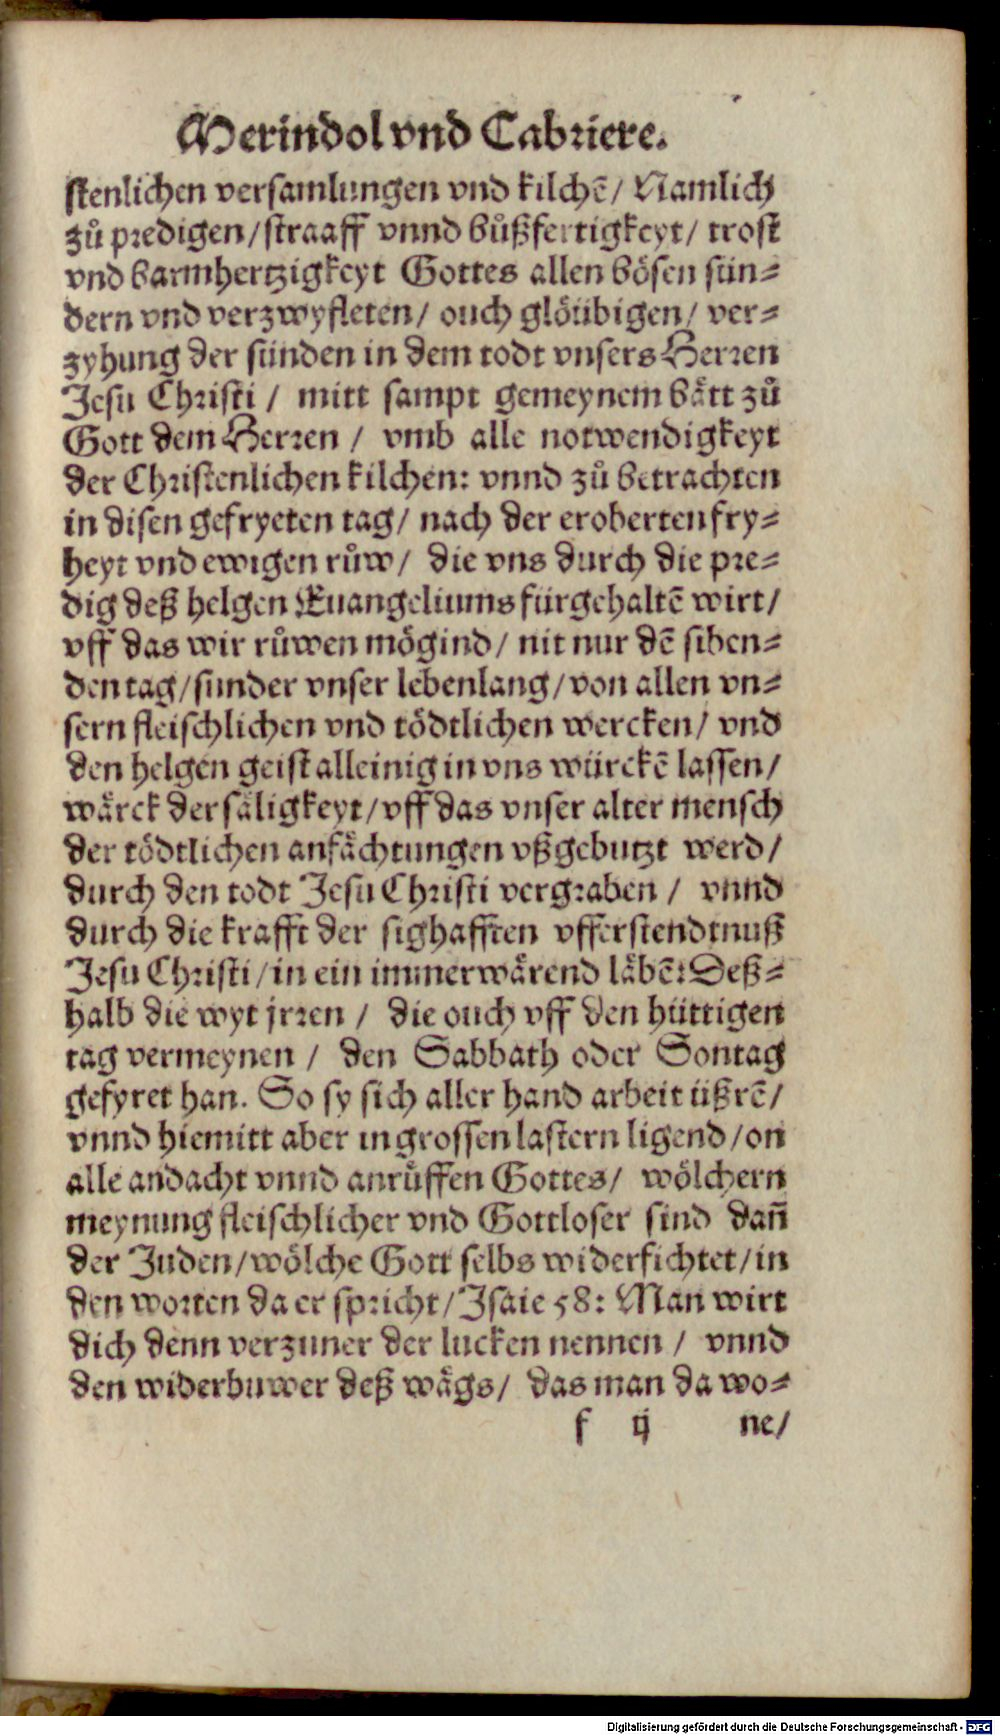 Merindol vnd Cabriere.
stenlichen versamlungen vnd kilchē/ Namlich
zů predigen/straaff vnnd bůßfertigkeyt/ trost
vnd barmhertzigkeyt Gottes allen bösen sün⸗
dern vnd verzwyfleten/ ouch glöübigen/ ver⸗
zyhung der sünden in dem todt vnsers Herren
Jesu Christi / mitt sampt gemeynem bått zů
Gott dem Herren / vmb alle notwendigkeyt
der Christenlichen kilchen: vnnd zů betrachten
in disen gefryeten tag/ nach der eroberten fry⸗
heyt vnd ewigen růw/ die vns durch die pre⸗
dig deß helgen Euangeliums fürgehaltē wirt/
vff das wir růwen mögind/ nit nur dē siben⸗
den tag/sunder vnser lebenlang/von allen vn⸗
sern fleischlichen vnd tödtlichen wercken/ vnd
den helgen geist alleinig in vns würckē lassen/
wärck der säligkeyt/vff das vnser alter mensch
der tödtlichen anfächtungen vßgebutzt werd/
durch den todt Jesu Christi vergraben / vnnd
durch die krafft der sighafften vfferstendtnuß
Jesu Christi/in ein immerwärend läbē: Deß⸗
halb die wyt jrren / die ouch vff den hüttigen
tag vermeynen / den Sabbath oder Sontag
gefyret han. So sy sich aller hand arbeit üßrē/
vnnd hiemitt aber in grossen lastern ligend/on
alle andacht vnnd anrůffen Gottes/ wölchern
meynung fleischlicher vnd Gottloser sind dañ
der Juden/wölche Gott selbs widerfichtet/in
den worten da er spricht/Jsaie 58: Man wirt
dich denn verzuner der lucken nennen / vnnd
den widerbuwer deß wägs/ das man da wo⸗
f ij ne/
Digitalisierung gefördert durch die Deutsche Forschungsgemeinschaft - DFG